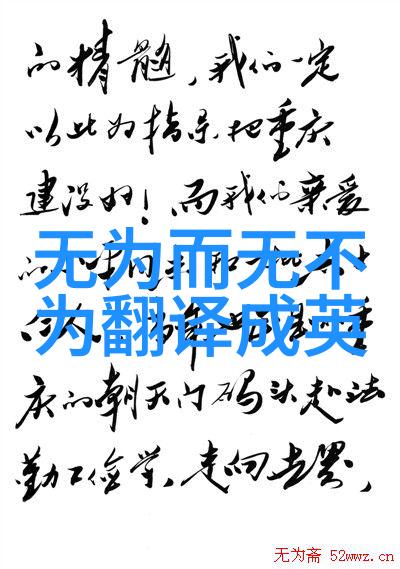 的精髓，我们一定
以此为指导把重庆
建设好！而我们亲爱
的小平同志和
无为而无不
为翻译成英
重
庆的朝天门码头赴法
勤工俭学，走向世界，
无为斋 52wwz.cn